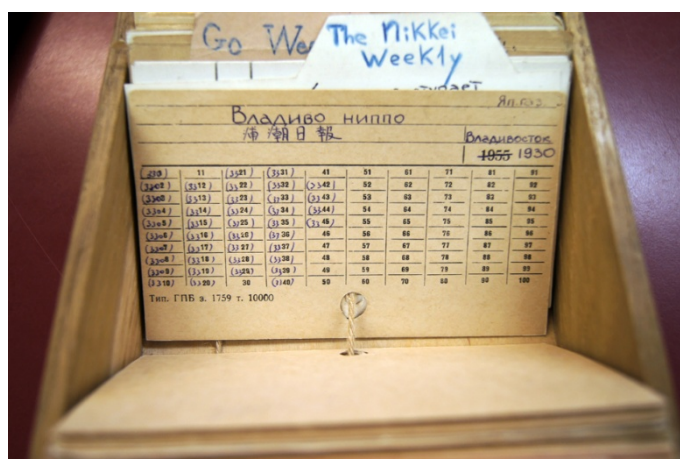 Go We
The Nikkei
Weekly
Яп.
Владиво ниппо
浦潮日報
Владивосток
1955 1930
11 (3321) (3331) 41 51 61 71 81 91
(3302) (3312) (3322) (3332) (3342) 52 62 72 82 92
(3303) (3313) (3323) (3333) (3343) 53 63 73 83 93
(3304) (3314) (3324) (3334) (3344) 54 64 74 84 94
(3305) (3315) (3325) (3335) (3345) 55 65 75 85 95
(3306) (3316) (3326) (3336) 46 56 66 76 86 96
(3307) (3317) (3327) (3337) 47 57 67 77 87 97
(3308) (3318) (3328) (3338) 48 58 68 78 88 98
(3309) (3319) (3329) (3339) 49 59 69 79 89 99
(3310) (3320) 30 (3340) 50 60 70 80 90 100
Тип. ГПБ з. 1759 т. 10000